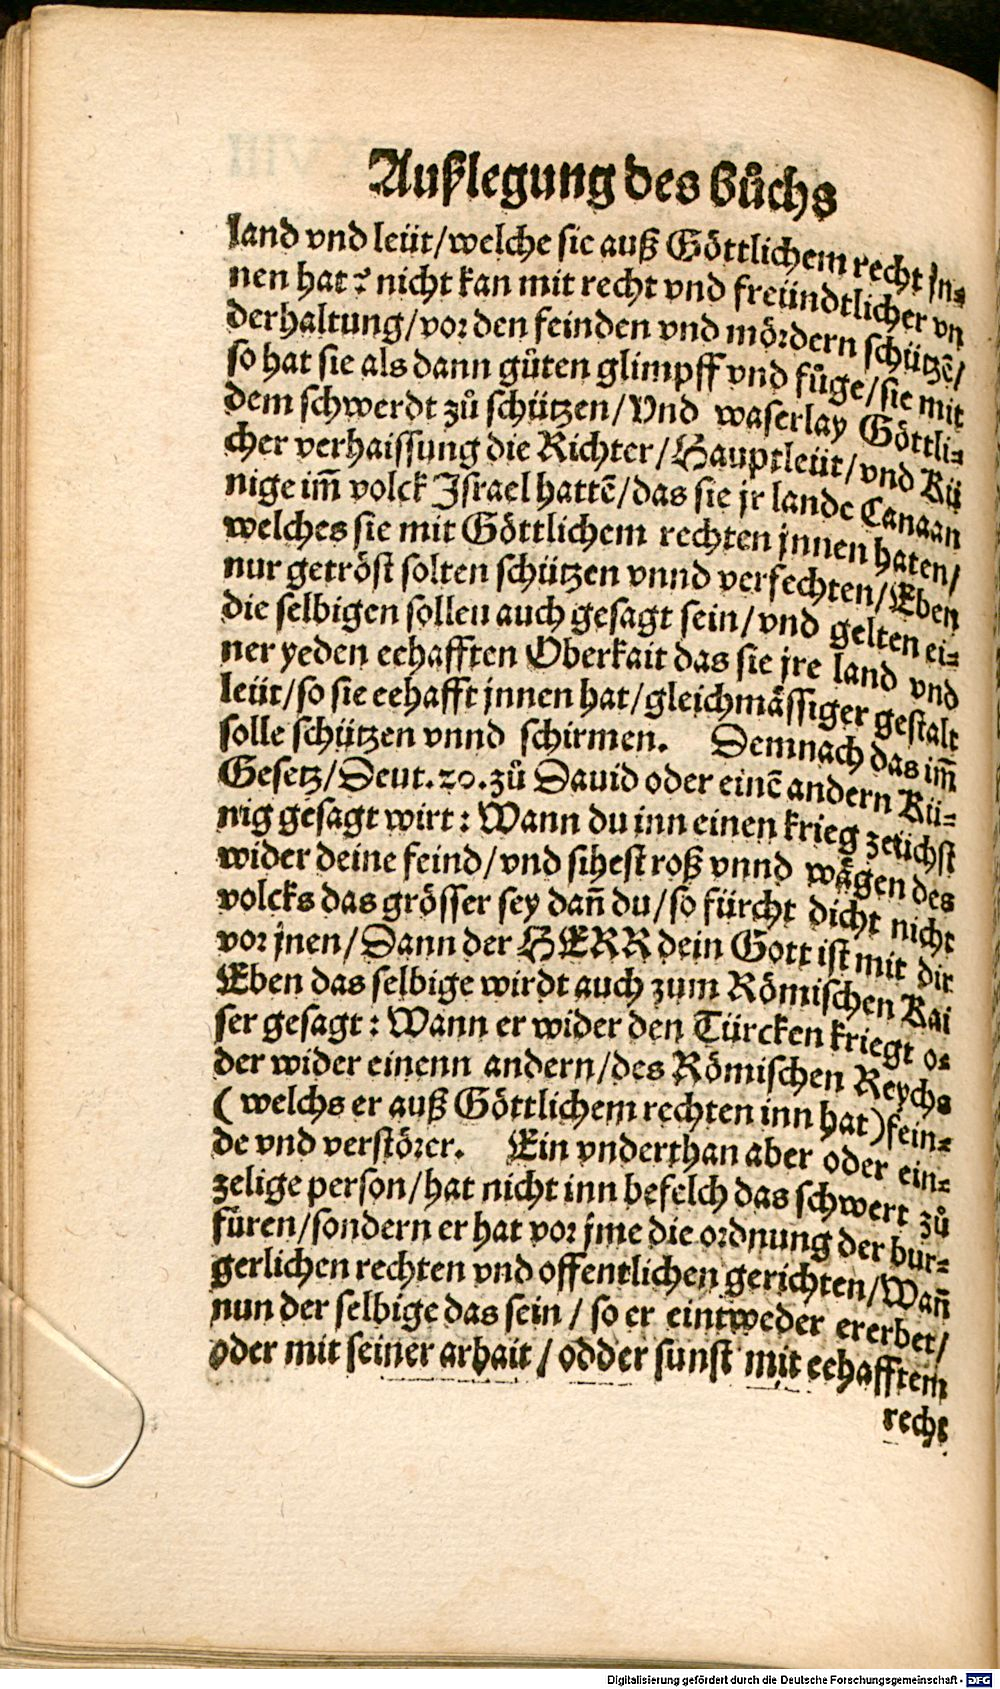 Außlegung des Bůchs
land vnd leüt/welche sie auß Göttlichem recht jn⸗
nen hat? nicht kan mit recht vnd freündtlicher vn
derhaltung/vor den feinden vnd mördern schützẽ/
so hat sie als dann gůten glimpff vnd fůge/sie mit
dem schwerdt zů schützen/Vnd waserlay Göttli⸗
cher verhaissung die Richter/Hauptleüt/vnd Kü
nige im̃ volck Jsrael hattẽ/das sie jr lande Canaan
welches sie mit Göttlichem rechten jnnen haten/
nur getröst solten schützen vnnd verfechten/Eben
die selbigen solleu auch gesagt sein/vnd gelten ei⸗
ner yeden eehafften Oberkait das sie jre land vnd
leüt/so sie eehafft jnnen hat/gleichmässiger gestalt
solle schützen vnnd schirmen. Demnach das im̃
Gesetz/Deut.20.zů Dauid oder einẽ andern Kü⸗
nig gesagt wirt: Wann du inn einen krieg zeüchst
wider deine feind/vnd sihest roß vnnd wägen des
volcks das grösser sey dañ du/so fürcht dicht nicht
vor jnen/Dann der HERR dein Gott ist mit dir
Eben das selbige wirdt auch zum Römischen Kai
ser gesagt: Wann er wider den Türcken kriegt o⸗
der wider einenn andern/des Römischen Reychs
(welchs er auß Göttlichem rechten inn hat)fein⸗
de vnd verstörer. Ein vnderthan aber oder ein⸗
zelige person/hat nicht inn befelch das schwert zů
füren/sondern er hat vor jme die ordnung der bur⸗
gerlichen rechten vnd offentlichen gerichten/Wañ
nun der selbige das sein/so er eintweder ererbet/
oder mit seiner arbait/odder sunst mit eehafftem
recht
Digitalisierung gefördert durch die Deutsche Forschungsgemeinschaft - DFG